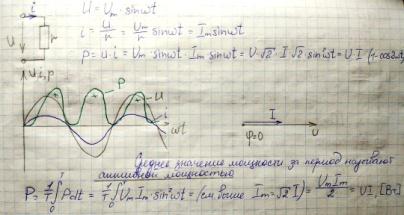 i
U
r
U = Um · sinωt
i = U/r = Um/r sinωt = Im sinωt
p = u · i = Um · sinωt · Im · sinωt = U·√2 · I √2 · sin²ωt = U·I (1-cos2ωt)
U, i, p
P
U
i
ωt
I
φ=0
U
Среднее значение мощности за период называют
активной мощностью
P = 1/T ∫₀ᵀ P dt = 1/T ∫₀ᵀ Um Im · sin²ωt = (см выше Im = √2 I) = Um Im / 2 = UI, [Вт]